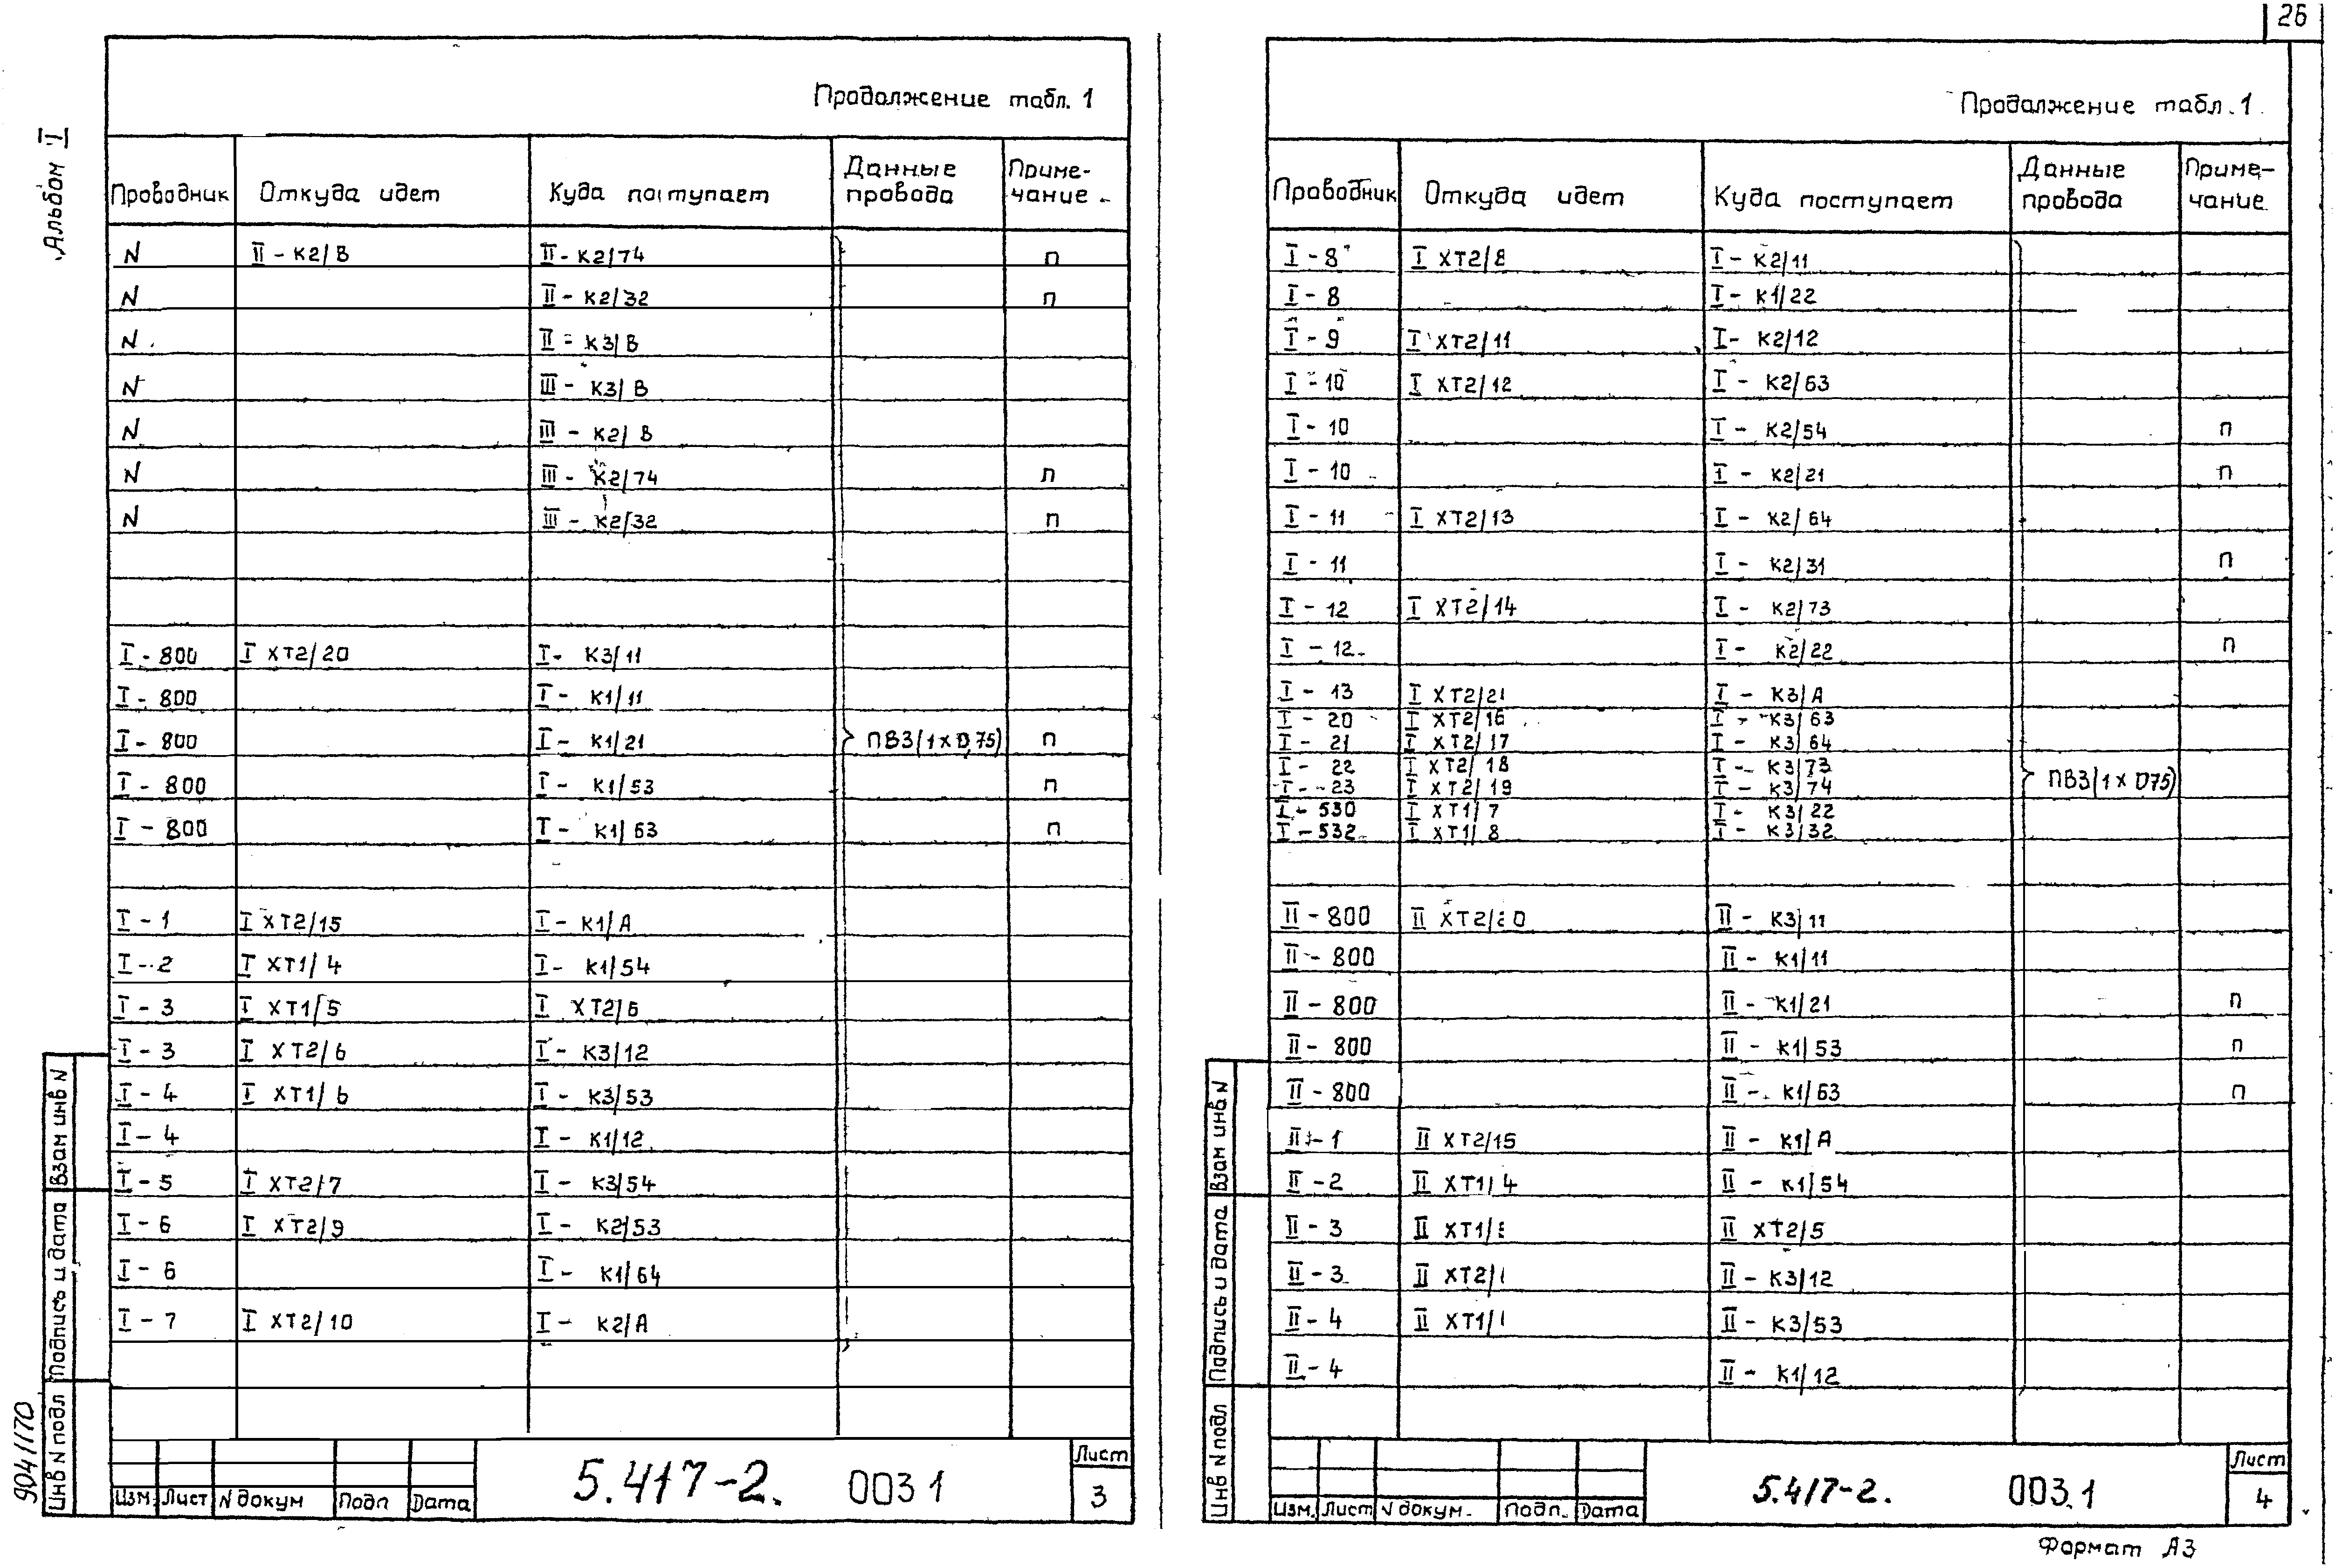 26
Альбом I
Продолжение табл. 1
Проводник Откуда идет Куда поступает Данные провода Примечание
N II - К2/В II - К2/74 п
N II - К2/32 п
N II - К3/В
N III - К3/В
N III - К2/В
N III - К2/74 п
N III - К2/32 п
I - 800 I ХТ2/20 I - К3/11
I - 800 I - К1/11
I - 800 I - К1/21 ПВ3(1х0,75) п
I - 800 I - К1/53 п
I - 800 I - К1/63 п
I - 1 I ХТ2/15 I - К1/А
I - 2 I ХТ1/4 I - К1/54
I - 3 I ХТ1/5 I ХТ2/6
I - 3 I ХТ2/6 I - К3/12
I - 4 I ХТ1/6 I - К3/53
I - 4 I - К1/12
I - 5 I ХТ2/7 I - К3/54
I - 6 I ХТ2/9 I - К2/53
I - 6 I - К1/64
I - 7 I ХТ2/10 I - К2/А
Взам инв N
Подпись и дата
Инв N подл
9041/170
Изм. Лист N докум Подп Дата
5.417-2. 003 1
Лист
3
Продолжение табл. 1
Проводник Откуда идет Куда поступает Данные провода Примечание
I - 8 I ХТ2/8 I - К2/11
I - 8 I - К1/22
I - 9 I ХТ2/11 I - К2/12
I - 10 I ХТ2/12 I - К2/63
I - 10 I - К2/54 п
I - 10 I - К2/21 п
I - 11 I ХТ2/13 I - К2/64
I - 11 I - К2/31 п
I - 12 I ХТ2/14 I - К2/73
I - 12 I - К2/22 п
I - 13 I ХТ2/21 I - К3/А
I - 20 I ХТ2/16 I - К3/63
I - 21 I ХТ2/17 I - К3/64
I - 22 I ХТ2/18 I - К3/73
I - 23 I ХТ2/19 I - К3/74 ПВ3(1х075)
I - 530 I ХТ1/7 I - К3/22
I - 532 I ХТ1/8 I - К3/32
II - 800 II ХТ2/20 II - К3/11
II - 800 II - К1/11
II - 800 II - К1/21 п
II - 800 II - К1/53 п
II - 800 II - К1/63 п
II - 1 II ХТ2/15 II - К1/А
II - 2 II ХТ1/4 II - К1/54
II - 3 II ХТ1/ II ХТ2/5
II - 3 II ХТ2/ II - К3/12
II - 4 II ХТ1/ II - К3/53
II - 4 II - К1/12
Взам инв N
Подпись и дата
Инв N подл
Изм. Лист N докум. Подп. Дата
5.417-2. 003.1
Лист
4
Формат А3